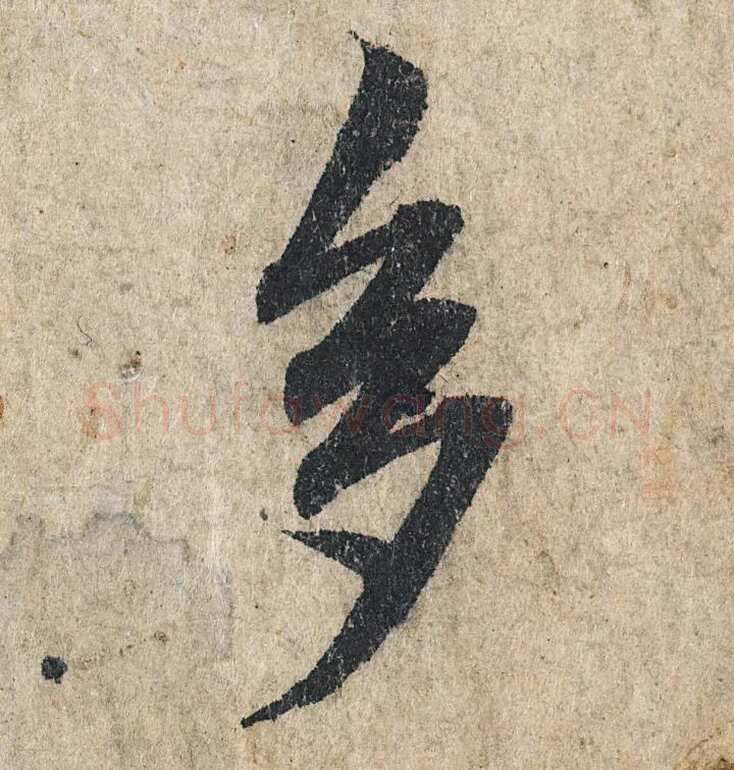 多
Shufawang.CN